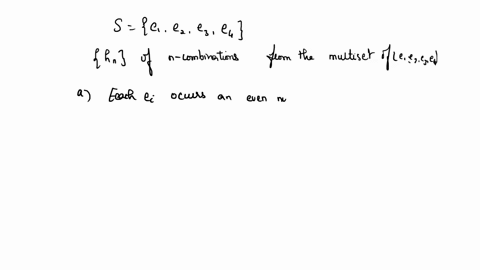 S = {e1, e2, e3, e4}
{hn} of n-combinations from the multiset of {e1, e2, e3, e4}
a) Each ei occurs an even n